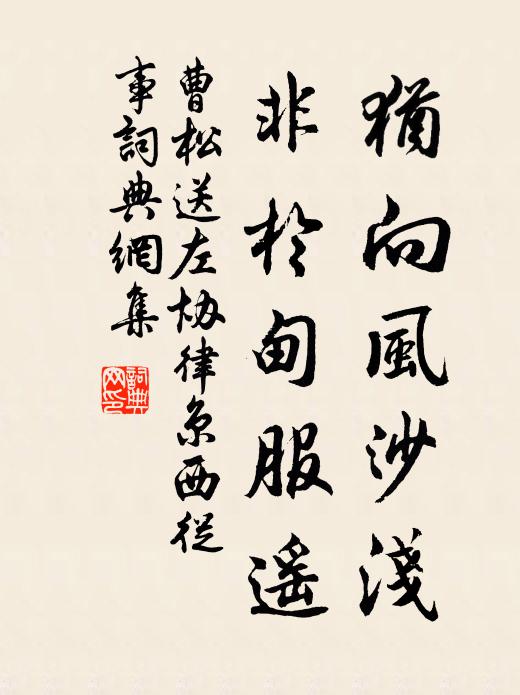 猶向風沙淺
非於甸服遥
曹松送左協律京西從
事詞典網集
詞典
网印